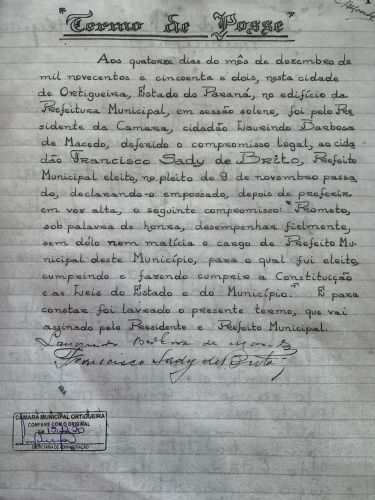 "Termo de Posse"
Aos quatorze dias do mês de dezembro de
mil novecentos e cincoenta e dois, nesta cidade
de Ortigueira, Estado do Paraná, no edifício da
Prefeitura Municipal, em sessão solene, foi pelo Pre
sidente da Camara, cidadão Laurindo Barbosa
de Macedo, deferido o compromisso legal, ao cida
dão Francisco Sady de Brito, Prefeito
Municipal eleito, no pleito de 9 de novembro passa
do, declarando-o empossado, depois de proferir
em voz alta, o seguinte compromisso: "Prometo,
sob palavra de honra, desempenhar fielmente,
sem dólo nem malícia o cargo de Prefeito Mu-
nicipal deste Município, para o qual fui eleito,
cumprindo e fazendo cumprir a Constituição
e as Leis do Estado e do Município." E para
constar foi lavrado o presente termo, que vai
assinado pelo Presidente e Prefeito Municipal.
Laurindo Barbosa de Macedo
Francisco Sady de Brito
CÂMARA MUNICIPAL ORTIGUEIRA
CONFERE COM O ORIGINAL
SECRETARIA DE ADMINISTRAÇÃO